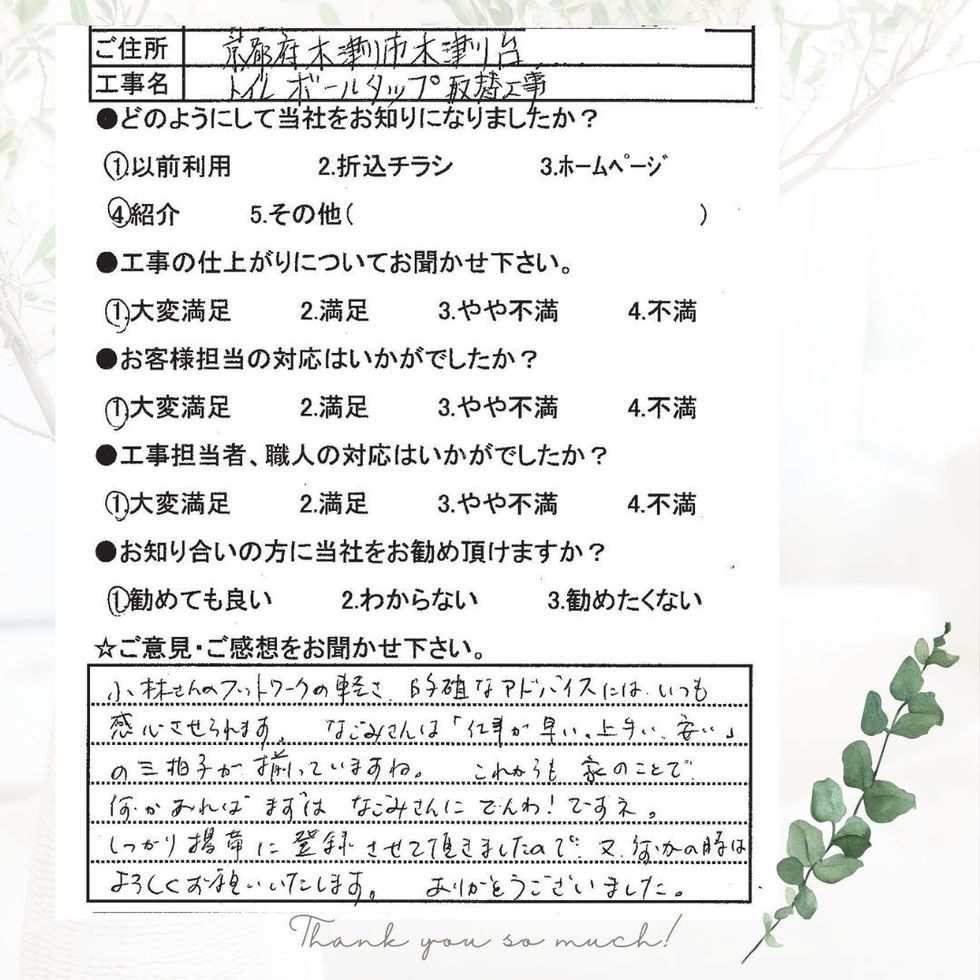 ご住所 京都府木津川市木津川台.....
工事名 トイレ ボールタップ取替工事
●どのようにして当社をお知りになりましたか？
1.以前利用 2.折込チラシ 3.ホームページ
4.紹介 5.その他( )
●工事の仕上がりについてお聞かせ下さい。
1.大変満足 2.満足 3.やや不満 4.不満
●お客様担当の対応はいかがでしたか？
1.大変満足 2.満足 3.やや不満 4.不満
●工事担当者、職人の対応はいかがでしたか？
1.大変満足 2.満足 3.やや不満 4.不満
●お知り合いの方に当社をお勧め頂けますか？
1.勧めても良い 2.わからない 3.勧めたくない
☆ご意見・ご感想をお聞かせ下さい。
小林さんのフットワークの軽さ、的確なアドバイスには、いつも
感心させられます。 なごみさんは「仕事が早い、上手い、安い」
の三拍子が揃っていますね。 これからも 家のことで
何かあれば まずは なごみさんに でんわ!ですネ。
しっかり携帯に登録させて頂きましたので、又、何かの時は
よろしくお願いいたします。 ありがとうございました。
Thank you so much!